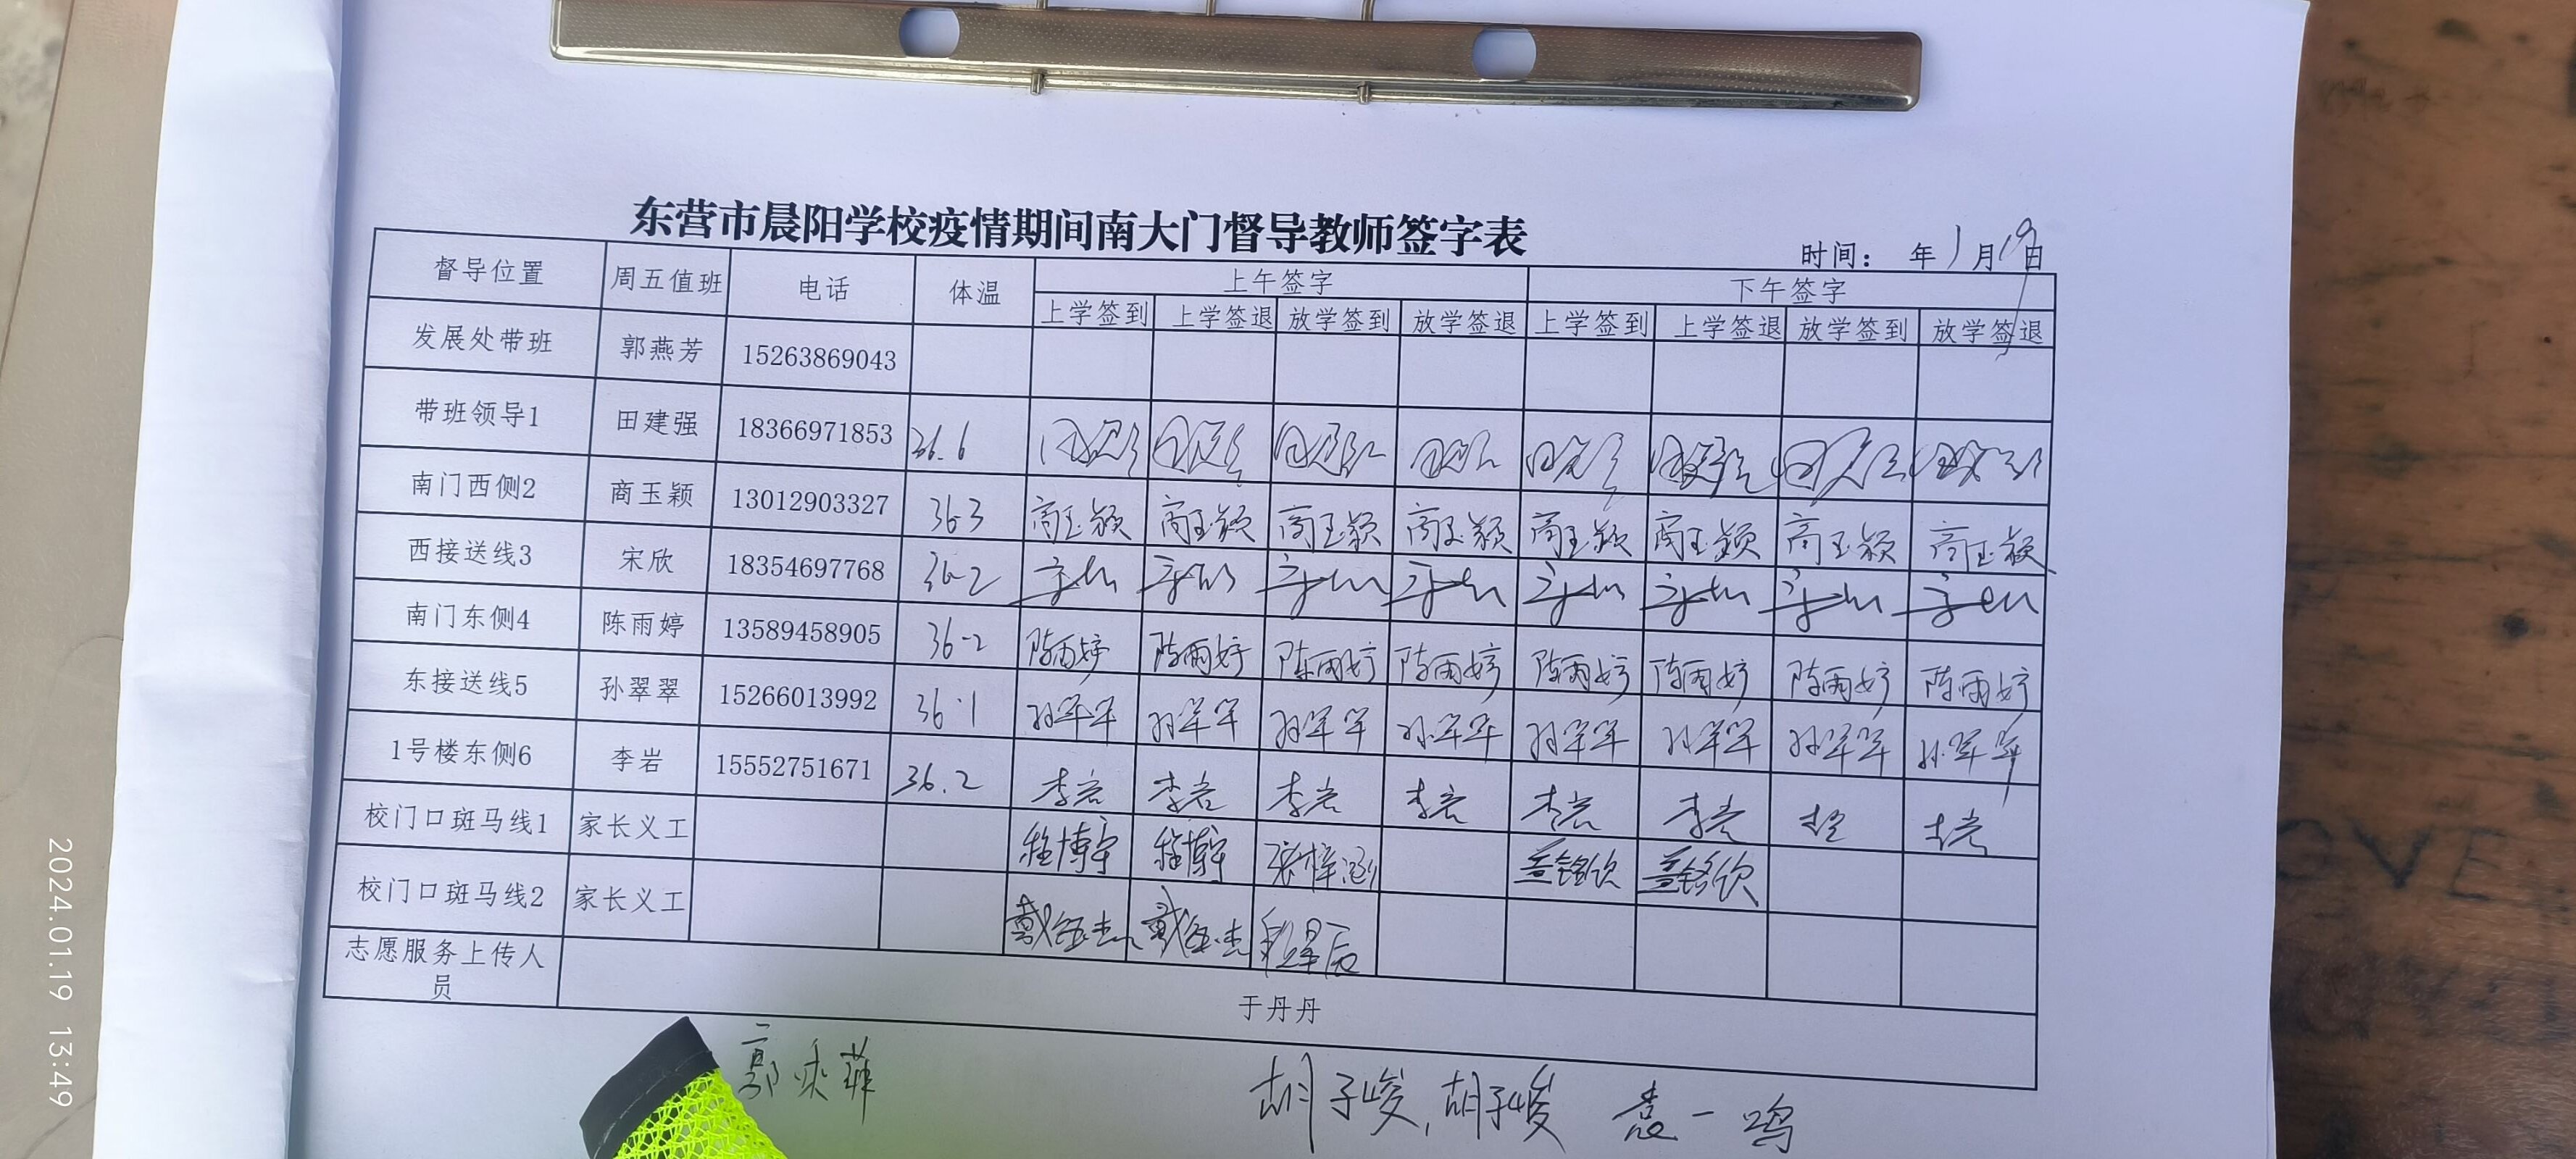 东营市晨阳学校疫情期间南大门督导教师签字表
时间： 年1月19日
督导位置 周五值班 电话 体温 上午签字 下午签字
上学签到 上学签退 放学签到 放学签退 上学签到 上学签退 放学签到 放学签退
发展处带班 郭燕芳 15263869043
带班领导1 田建强 18366971853 36.6
南门西侧2 商玉颖 13012903327 36.3 商玉颖 商玉颖 商玉颖 商玉颖 商玉颖 商玉颖 商玉颖 商玉颖
西接送线3 宋欣 18354697768 36.2
南门东侧4 陈雨婷 13589458905 36.2 陈雨婷 陈雨婷 陈雨婷 陈雨婷 陈雨婷 陈雨婷 陈雨婷 陈雨婷
东接送线5 孙翠翠 15266013992 36.1 孙翠翠 孙翠翠 孙翠翠 孙翠翠 孙翠翠 孙翠翠 孙翠翠 孙翠翠
1号楼东侧6 李岩 15552751671 36.2 李岩 李岩 李岩 李岩 李岩 李岩 李岩 李岩
校门口斑马线1 家长义工 程博宇 程博宇 张梓涵 盖铭欣 盖铭欣
校门口斑马线2 家长义工
志愿服务上传人
员
于丹丹
郭奕菲 胡子峻，胡子峻 袁一鸣
2024.01.19 13:49